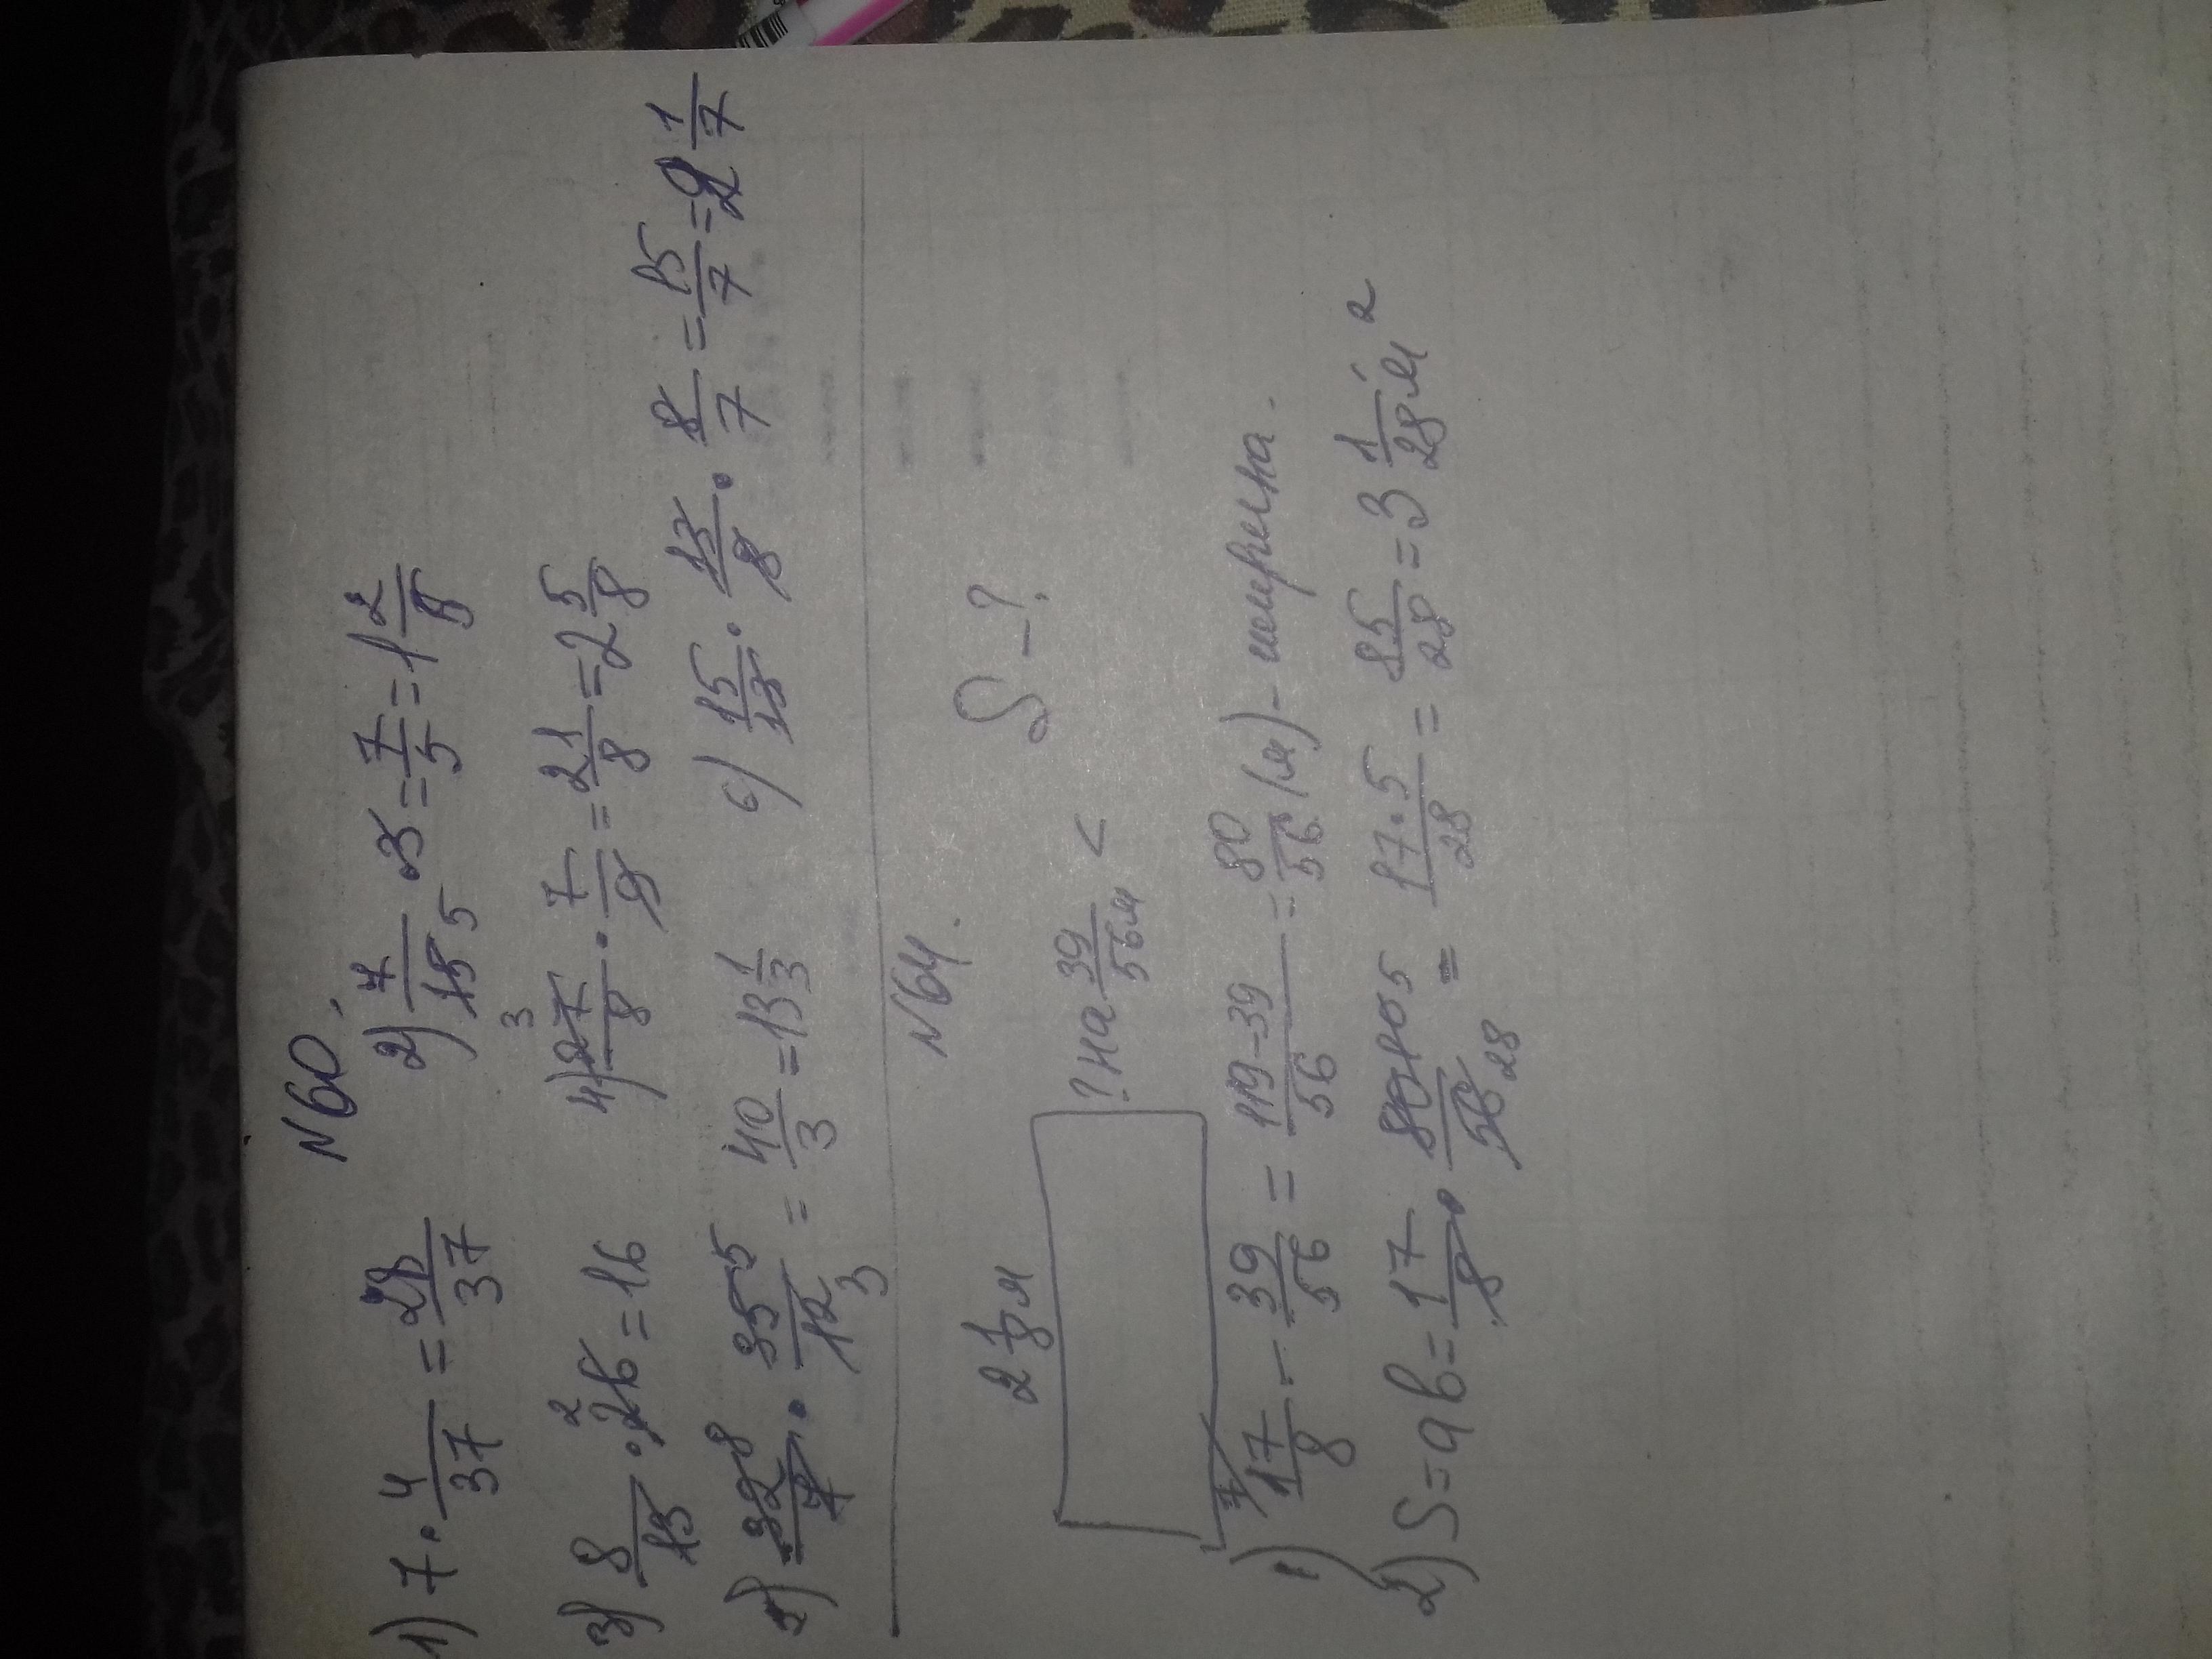 N60.
1) 7 · 4/37 = 28/37 2) 7/15 5 · 3 = 7/5 = 1 2/5
3) 8/13 · 26 2 = 16 4) 27 3/8 · 7/9 = 21/8 = 2 5/8
5) 32 8/7 · 35 5/12 3 = 40/3 = 13 1/3 6) 15/13 · 13/8 · 8/7 = 15/7 = 2 1/7
N64.
2 1/8 м
? на 39/56 м < S - ?
1) 17/8 - 39/56 = 119-39/56 = 80/56 (м) - ширина.
2) S = ab = 17/8 · 80 10 5/56 28 = 17·5/28 = 85/28 = 3 1/28 м²